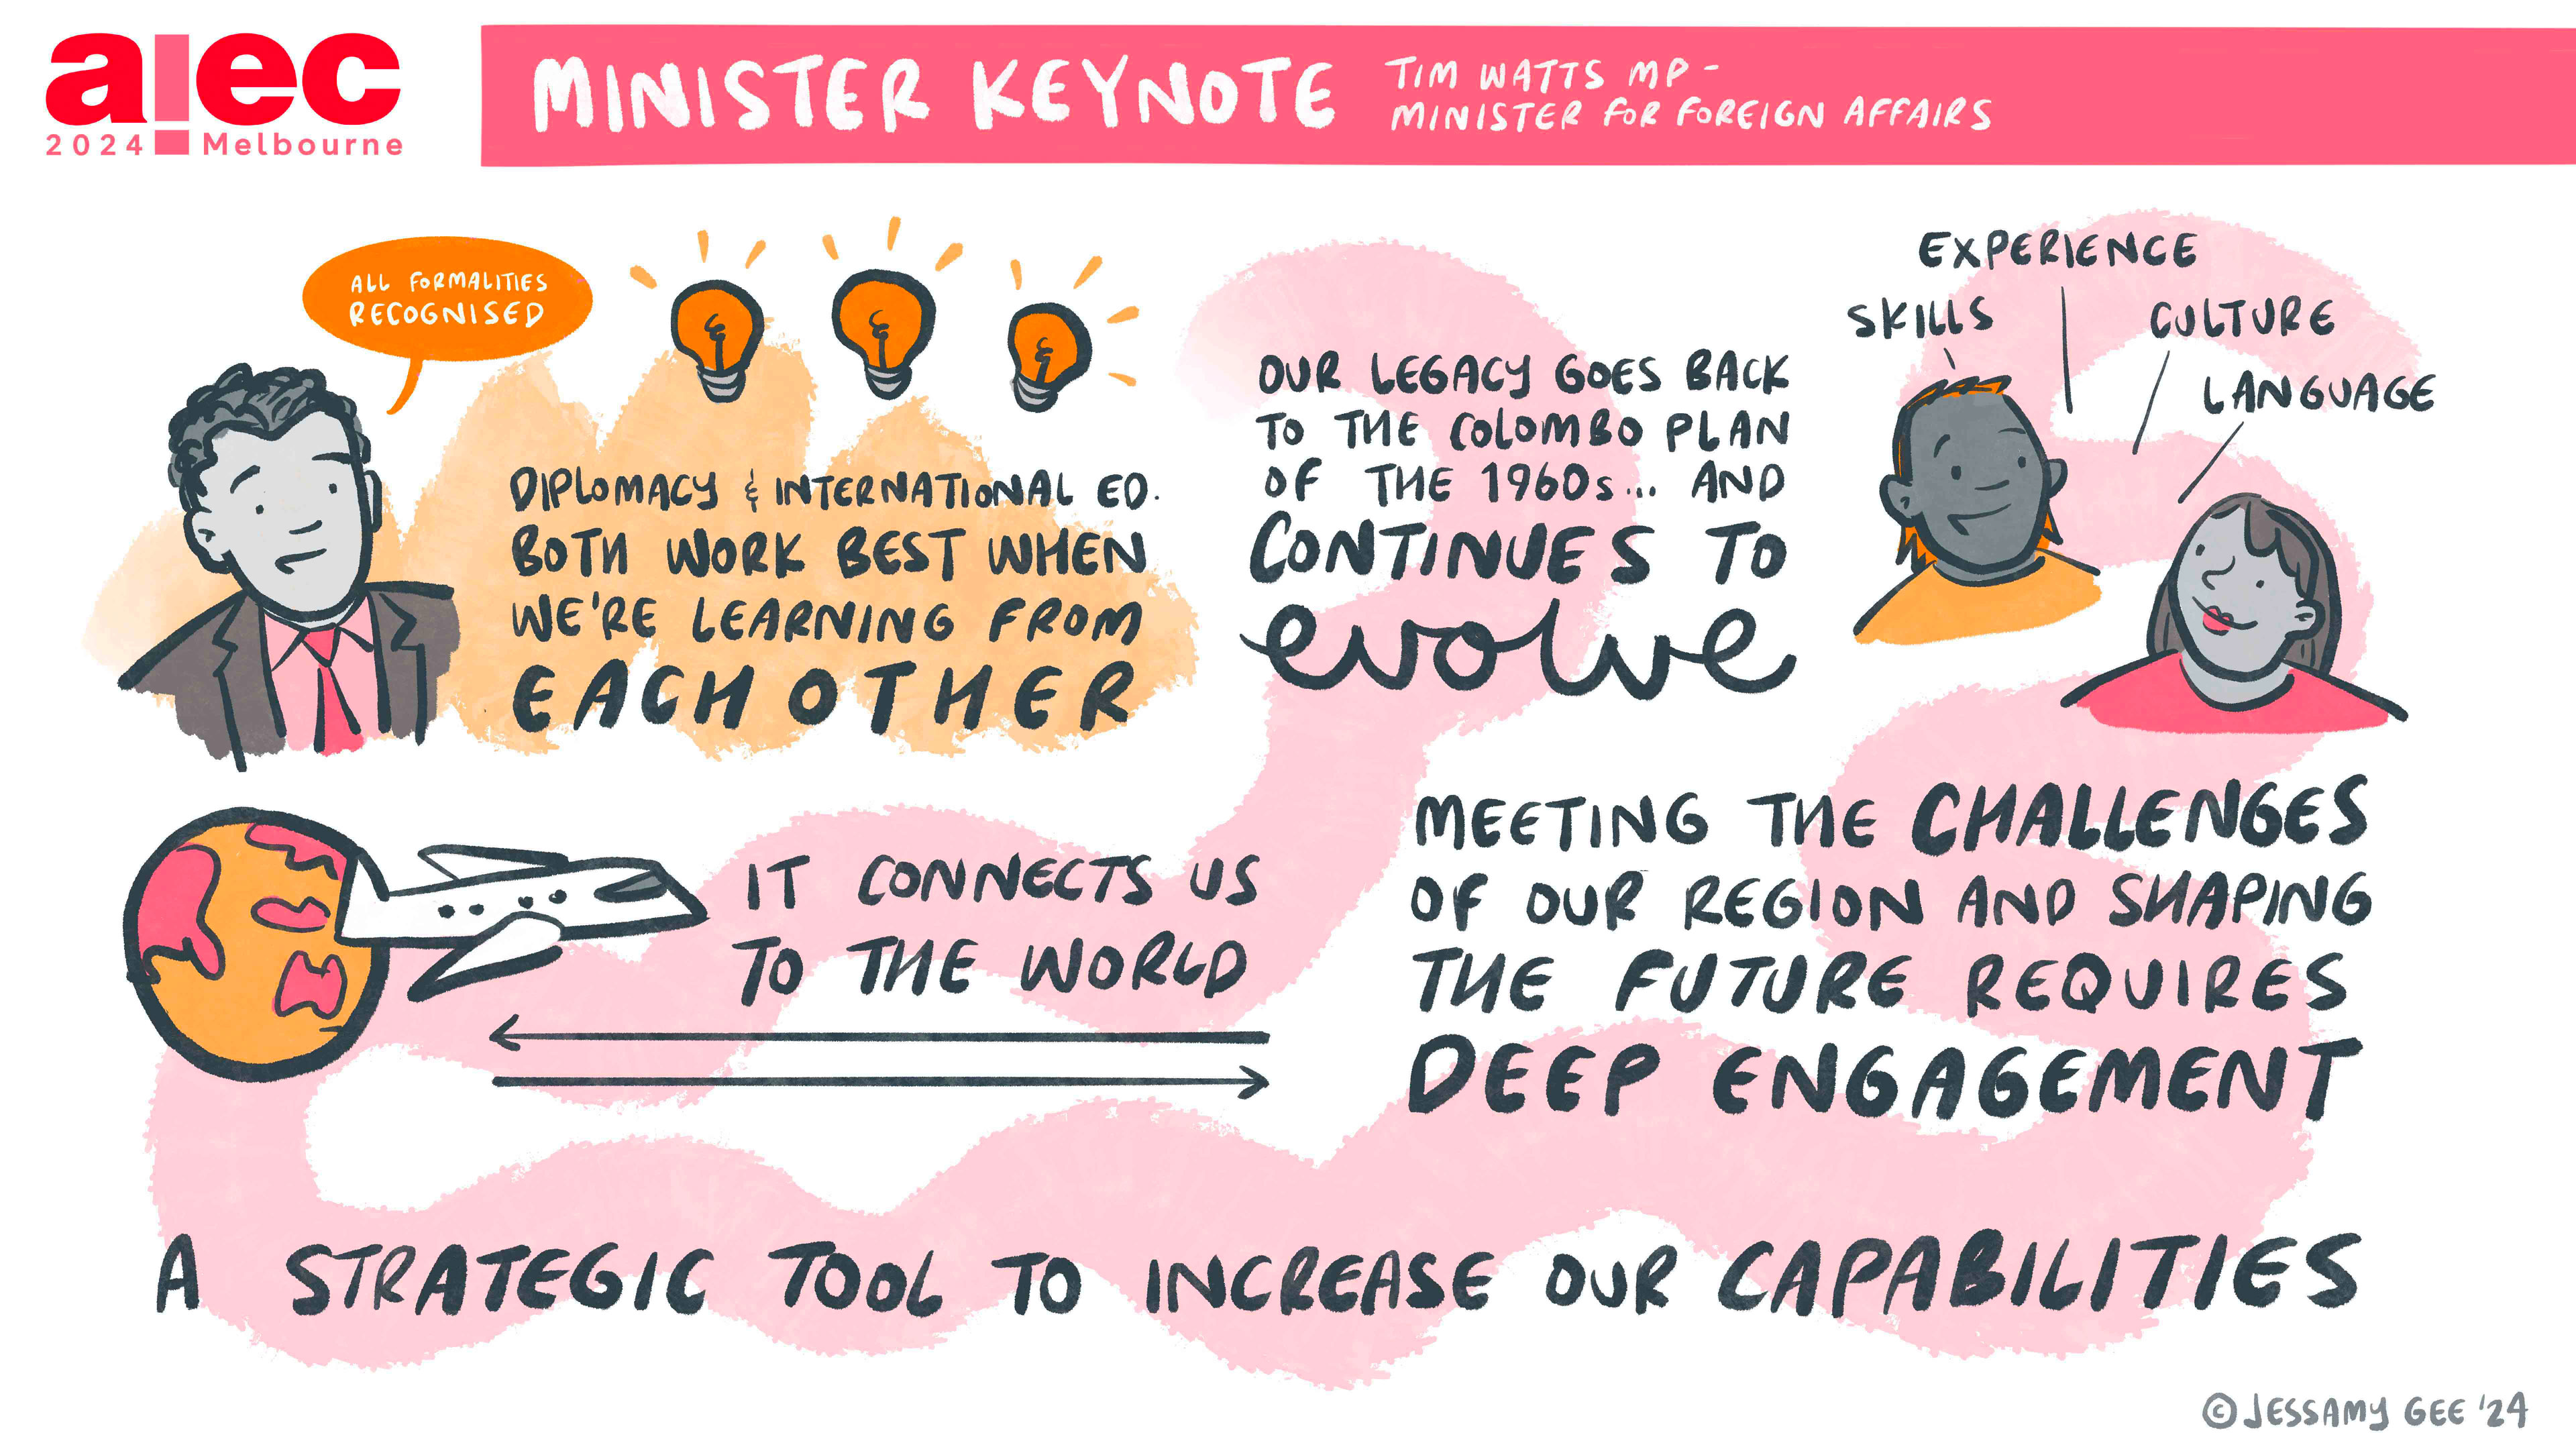 aiec
2024 Melbourne
MINISTER KEYNOTE
TIM WATTS MP -
MINISTER FOR FOREIGN AFFAIRS
ALL FORMALITIES
RECOGNISED
DIPLOMACY & INTERNATIONAL ED.
BOTH WORK BEST WHEN
WE'RE LEARNING FROM
EACH OTHER
OUR LEGACY GOES BACK
TO THE COLOMBO PLAN
OF THE 1960s... AND
CONTINUES TO
evolve
EXPERIENCE
SKILLS
CULTURE
LANGUAGE
IT CONNECTS US
TO THE WORLD
MEETING THE CHALLENGES
OF OUR REGION AND SHAPING
THE FUTURE REQUIRES
DEEP ENGAGEMENT
A STRATEGIC TOOL TO INCREASE OUR CAPABILITIES
© JESSAMY GEE '24